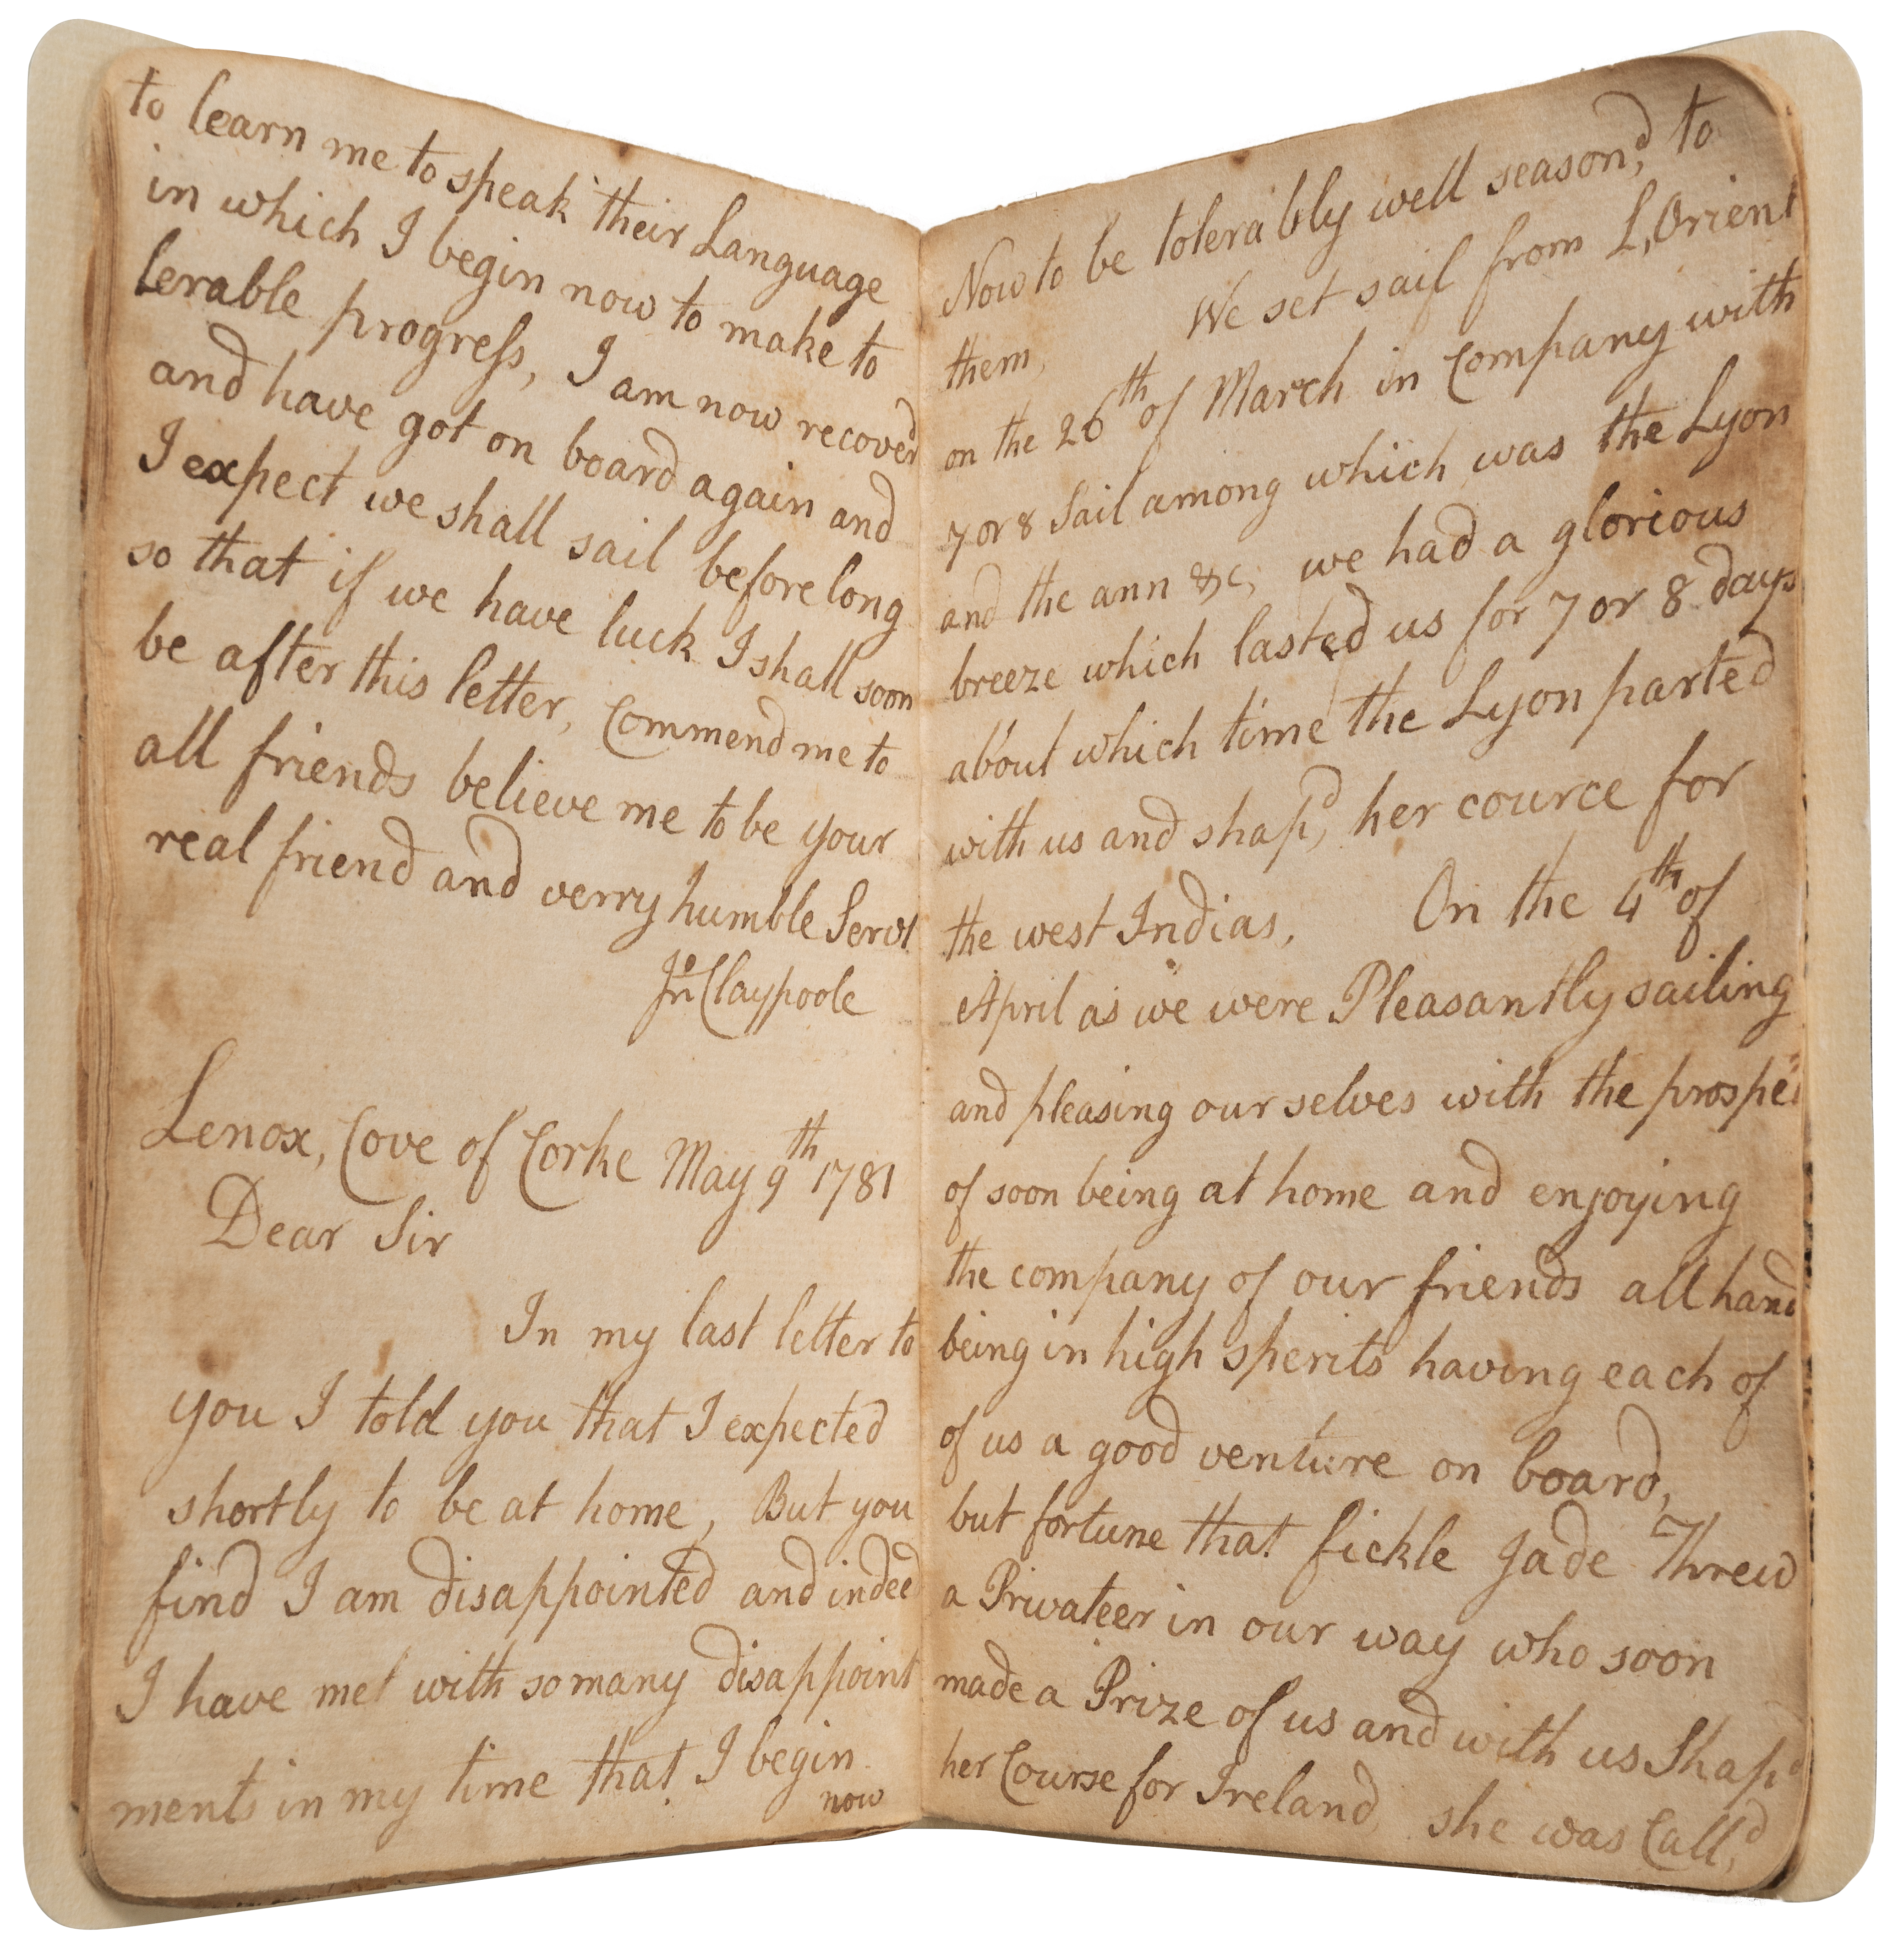 to learn me to speak their Language
in which I begin now to make to
lerable progress, I am now recoverd
and have got on board again and
I expect we shall sail before long
so that if we have luck I shall soon
be after this letter, Commend me to
all friends believe me to be your
real friend and verry humble Servt
Jno Claypoole
Lenox, Cove of Corke May 9th 1781
Dear Sir
In my last letter to
you I told you that I expected
shortly to be at home, But you
find I am disappointed and indeed
I have met with so many disappoint
ments in my time that I begin
now
Now to be tolerably well season,d to
them, We set sail from L,Orient
on the 26th of March in Company with
7 or 8 Sail among which was the Lyon
and the ann &c, we had a glorious
breeze which lasted us for 7 or 8 days
about which time the Lyon parted
with us and shap,d her cource for
the west Indias, On the 4th of
April as we were Pleasantly sailing
and pleasing our selves with the prospec
of soon being at home and enjoying
the company of our friends all hand
being in high sperits having each of
of us a good venture on board,
but fortune that fickle Jade Threw
a Privateer in our way who soon
made a Prize of us and with us Shap,d
her Course for Ireland, she was Call,d